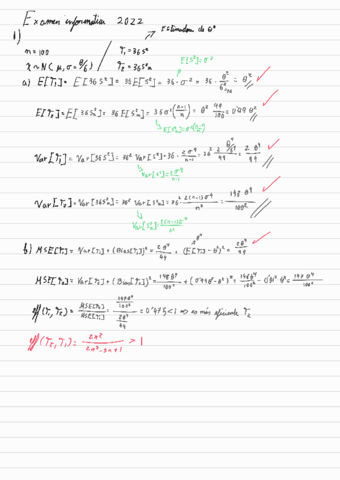 Examen informática 2022
1)
→ Estimadores de θ²
n=100
T₁=36s²
x~N(μ, σ=θ/6)
T₂=36s²n
E[s²]=σ²
a) E[T₁]=E[36s²]=36E[s²]=36·σ²=36·θ²/6²=θ²
E[T₂]=E[36s²n]=36E[s²n]=36σ²(n-1)/n=θ² 99/100=0'99θ²
E[s²n]=σ²(n-1)/n
Var[T₁]=Var[36s²]=36²Var[s²]=36²·2σ⁴/n-1=36²·2 θ⁴/6⁴/99=2θ⁴/99
Var[s²]=2σ⁴/n-1
Var[T₂]=Var[36s²n]=36²Var[s²n]=36²·2(n-1)σ⁴/n²=198θ⁴/100²
Var[s²n]=2(n-1)σ⁴/n²
b) MSE[T₁]=Var[T₁]+(Bias[T₁])²=2θ⁴/99+(E[T₁]-θ²)²=2θ⁴/99
MSE[T₂]=Var[T₂]+(Bias[T₂])²=198θ⁴/100²+(0'99θ²-θ²)²=198θ⁴/100²
eff(T₁,T₂)=MSE[T₂]/MSE[T₁]=198θ⁴/100²/2θ⁴/99=0'975<1 ⇒ es más eficiente T₂
eff(T₂,T₁)=2n²/2n²-3n+1>1